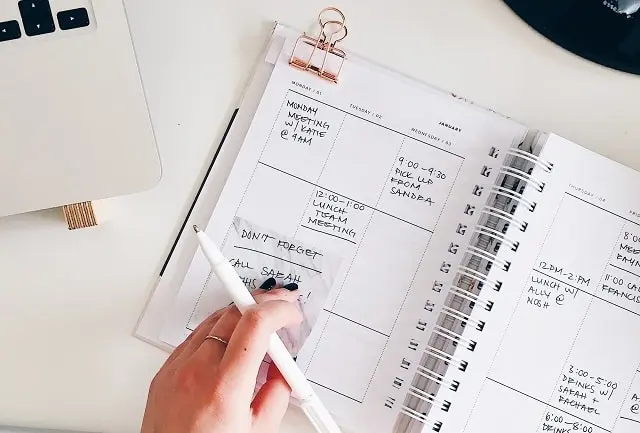 JANUARY
MONDAY / 01
TUESDAY / 02
WEDNESDAY / 03
THURSDAY / 04
MONDAY
MEETING
W/ KATIE
@ 9AM
12:00-1:00
LUNCH
TEAM
MEETING
9:00-9:30
PICK UP
FROM
SANDRA
DON'T FORGET
CALL SARAH
12PM-2PM
LUNCH W/
ALLY @
NOSH
3:00-5:00
DRINKS W/
SARAH +
RACHAEL
6:00-8:00
DRINKS
11:00